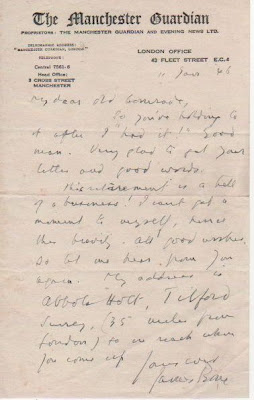 The Manchester Guardian
PROPRIETORS: THE MANCHESTER GUARDIAN AND EVENING NEWS LTD.
TELEGRAPHIC ADDRESS:
"MANCHESTER GUARDIAN, LONDON"
TELEPHONE:
Central 7561-8
Head Office:
3 CROSS STREET
MANCHESTER
LONDON OFFICE
42 FLEET STREET E.C.4
11 Jan 46
My dear old Comrade,
So you're holding to
it after I had it! Good
man. Very glad to get your
letter and good words.
This retirement is a hell
of a business! I can't get a
moment to myself, hence
this brevity. All good wishes.
Do let me hear from you
again. My address is
Abbots Holt, Tilford
Surrey, (35 miles from
London) to reach when
you come up
Yours ever
James Bone